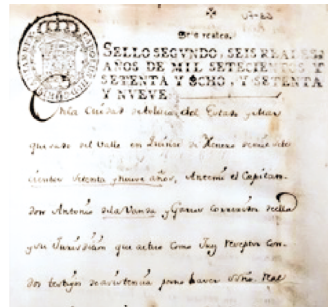 Seis reales.
SELLO SEGVNDO, SEIS REALES
AÑOS DE MIL SETECIENTOS Y
SETENTA Y OCHO, Y SETENTA
Y NUEVE.
En la Ciudad de del Estado y Mar
quesado del Valle en Quinse de Henero de mil sete
cientos setenta y nueve años, Antemi el Capitan
don Antonio de la Vanda y Garcia correxidor de ella
y su Jurisdicion que actuo como Juez receptor con
dos testigos de asistencia por no haver essno. Real